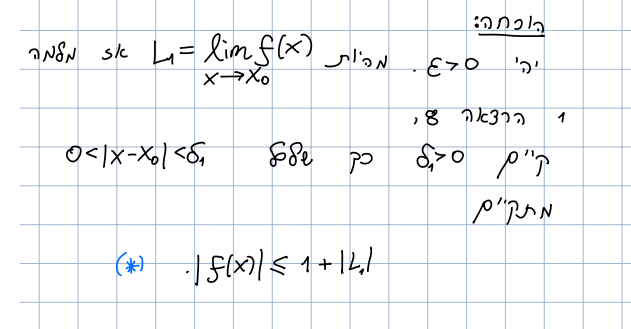 הוכחה:
יהי ε>0. מהיות L₁ = lim f(x) אז מלמה
x→x₀
1 הרצאה 8,
קיים δ₁>0 כך שלכל 0<|x-x₀|<δ₁
מתקיים
.|f(x)| ≤ 1+|L₁| (*)